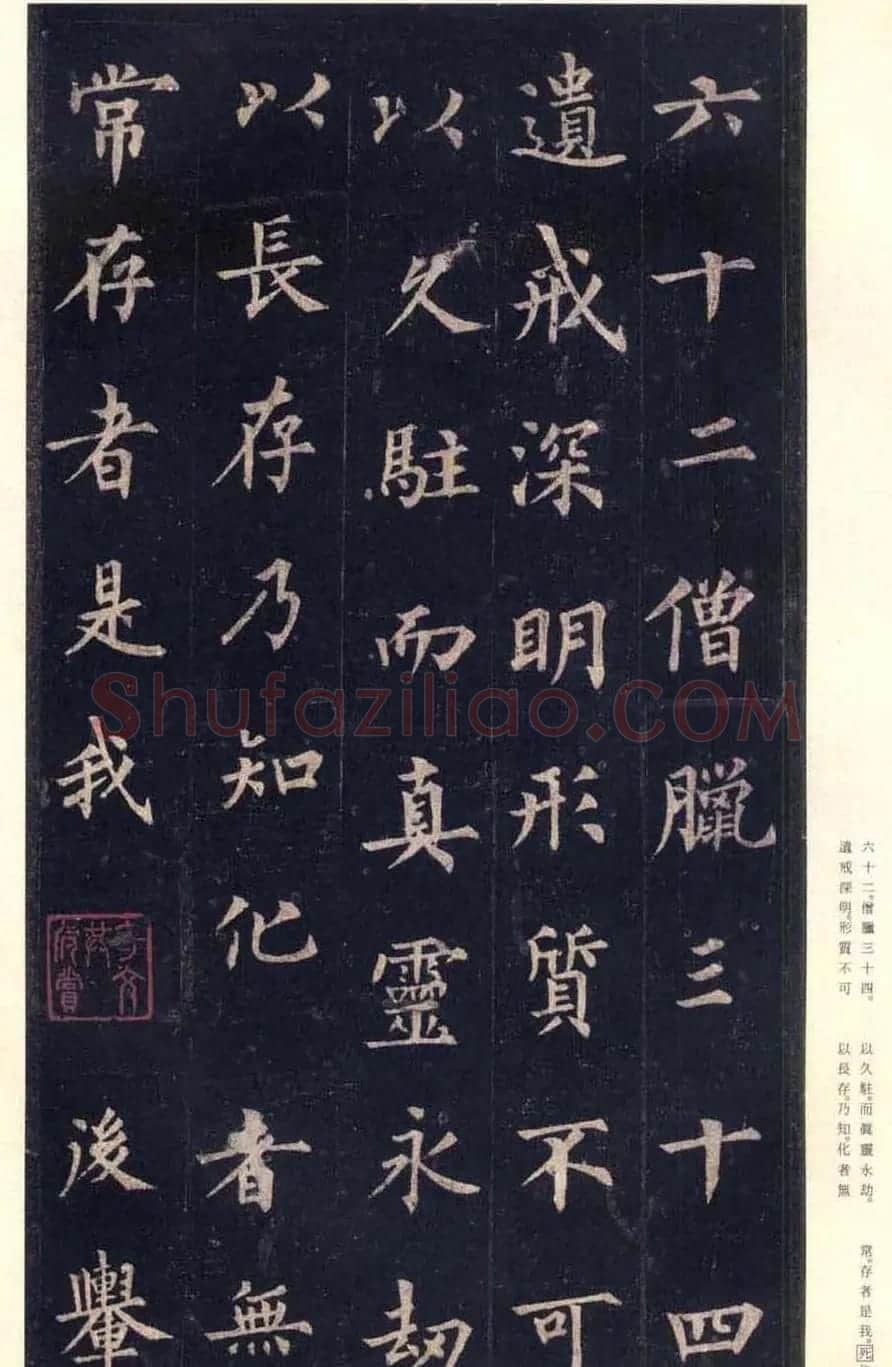 六十二僧臘三十四
遺戒深明形質不可
以久駐而真靈永劫
以長存乃知化者無
常存者是我
後轝
Shufaziliao.COM
六十二。僧臘三十四。
遺戒深明。形質不可
以久駐。而眞靈永劫。
以長存。乃知。化者無
常。存者是我。死